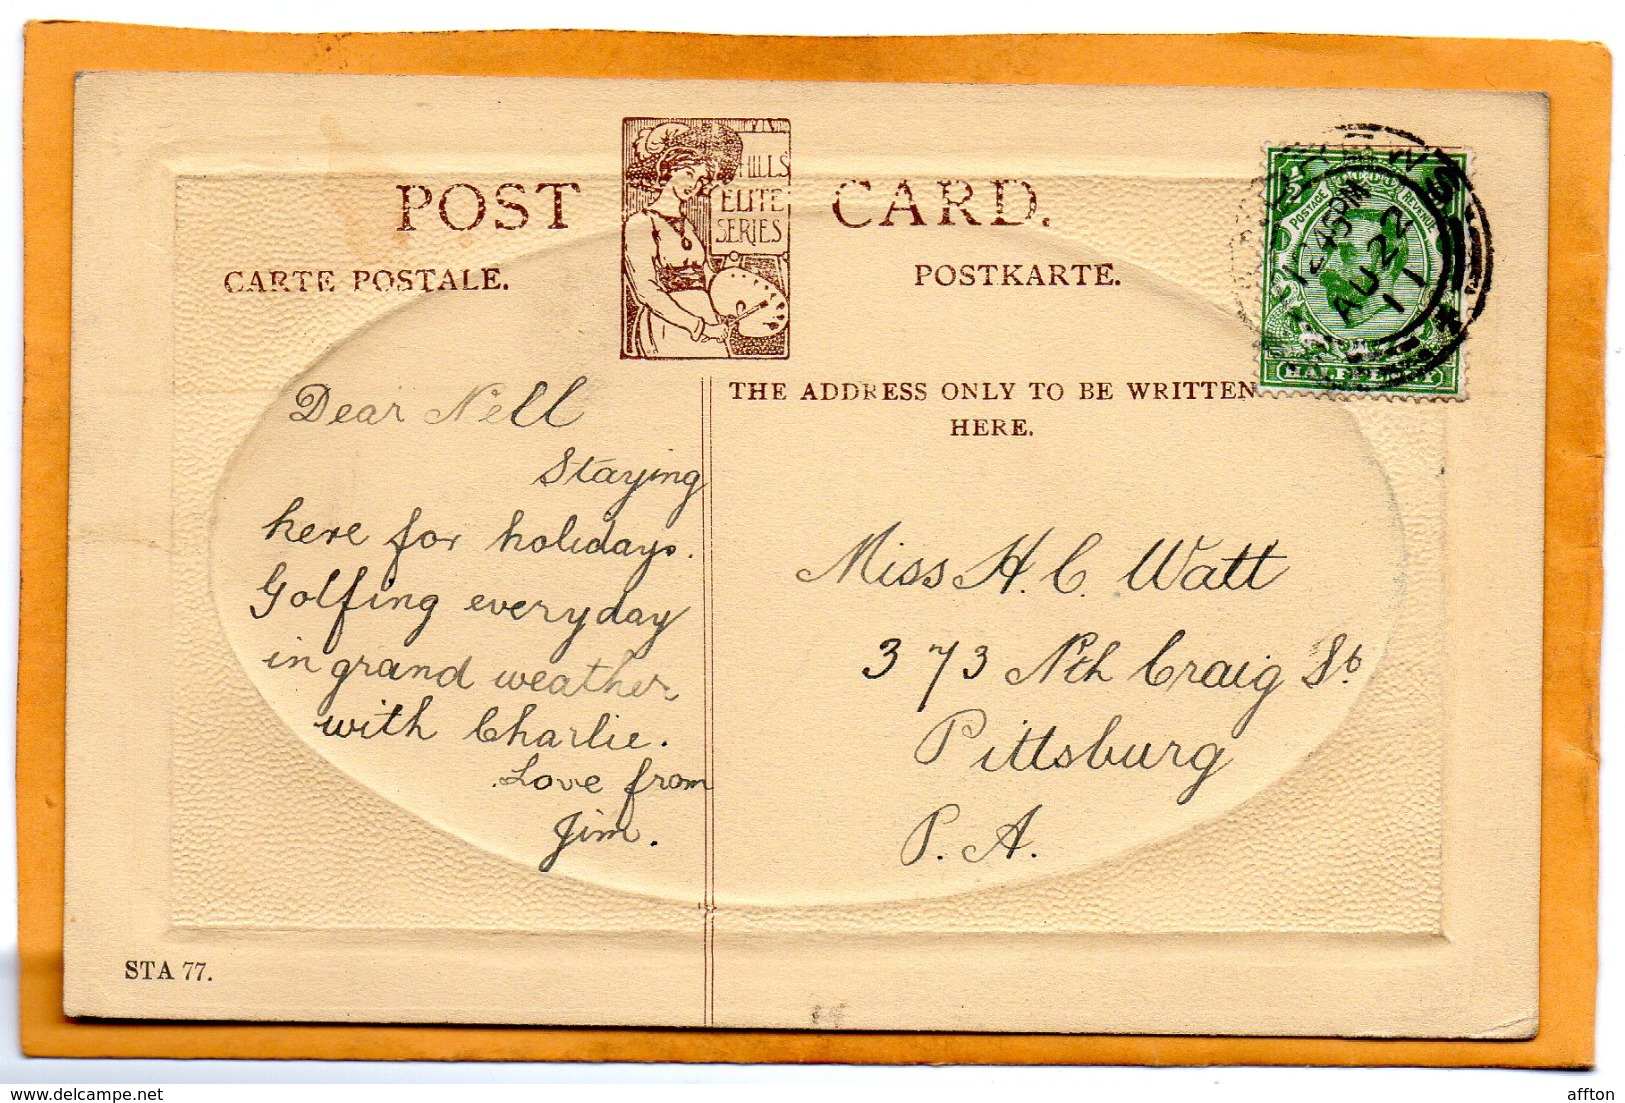 POST CARD.
HILLS
ELITE
SERIES
CARTE POSTALE.
POSTKARTE.
THE ADDRESS ONLY TO BE WRITTEN
HERE.
POSTAGE REVENUE
1245PM
AU 22
11
HALFPENNY
Dear Nell
Staying
here for holidays.
Golfing everyday
in grand weather
with Charlie.
Love from
Jim.
Miss H. C. Watt
373 Nth Craig St.
Pittsburg
P. A.
STA 77.
delcampe.net
affton